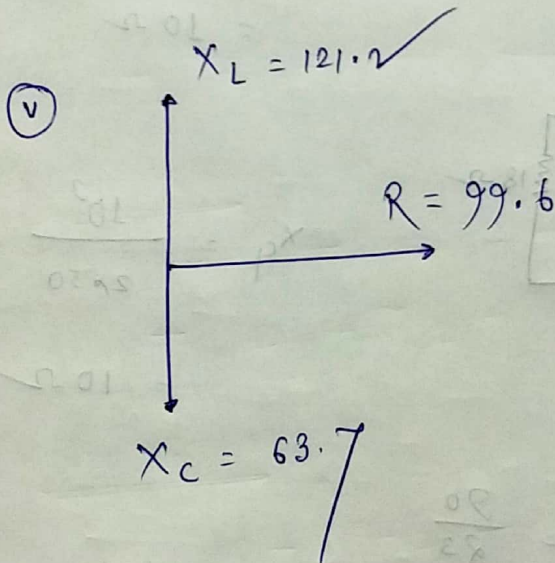 X_L = 121.2
(v)
R = 99.6
X_C = 63.7